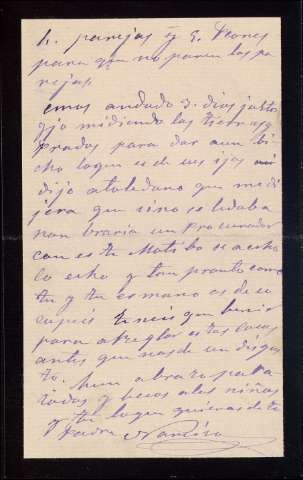 h. parejas y 3. Nones
para que no paren las pa
rejas
emos andado 3. dias justos
yjo midiendo las tierras y
prados para dar aun bi
cho loque es de sus ijos
dijo atoledano que me di
jera que sino seledaba
nonbraria un Procurador
con este Motibo se a echo
lo echo y tan pronto como
tu y tu ermano os deso
cupeis teneis que benir
para arreglar estas cosas
antes que nos de un disgus
to. hun abrazo para
todos y besos alas niñas
y tu loque quieras de tu
Padre Ramiro